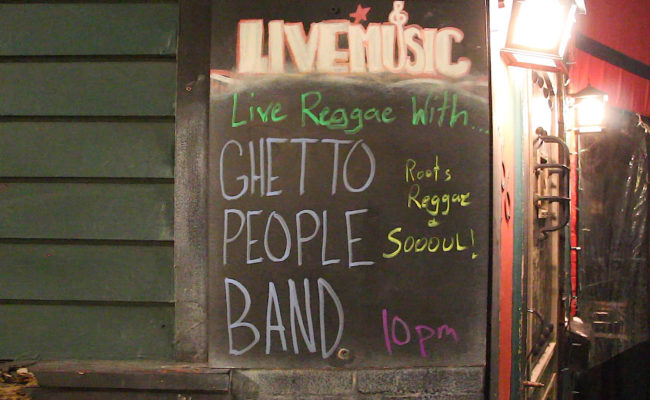 LIVE MUSIC
Live Reggae With...
GHETTO
PEOPLE
BAND
Roots
Reggae
&
SOOOUL!
10pm